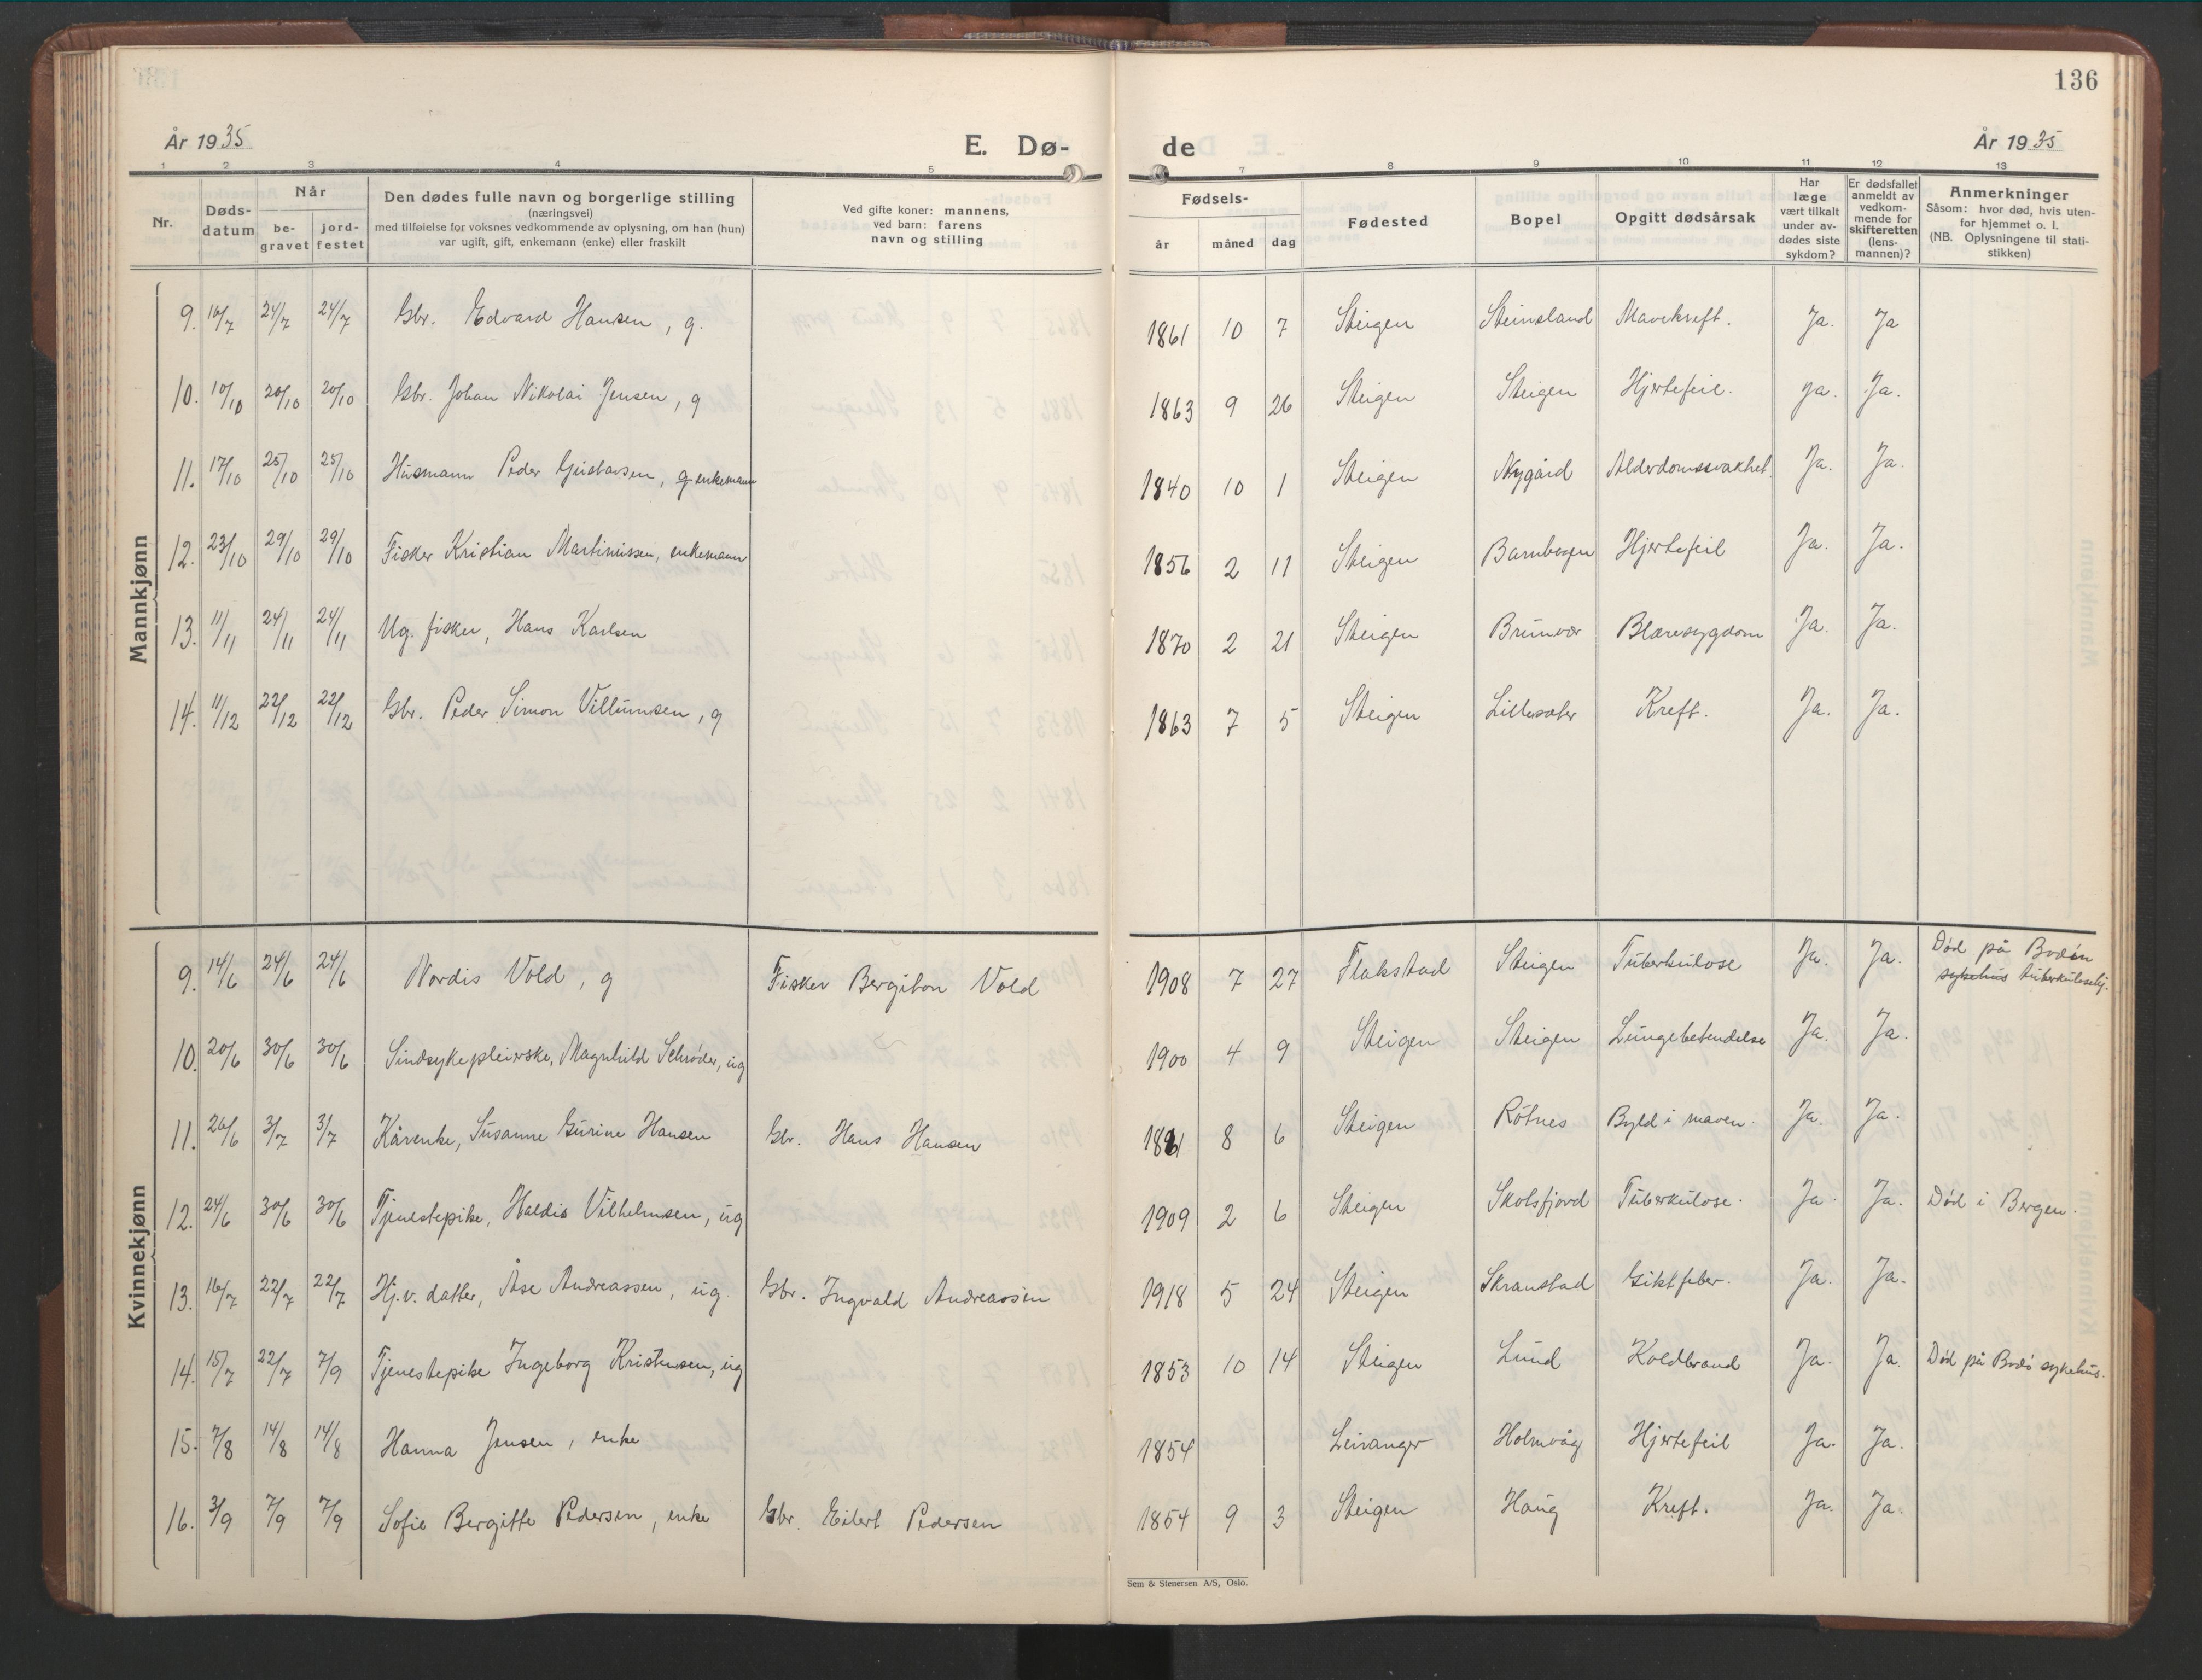 136
År 1935
E. Dø-
de
År 1935
1 2 3 4 5 7 8 9 10 11 12 13
Nr.
Døds-
datum
Når
be-
gravet
jord-
festet
Den dødes fulle navn og borgerlige stilling
(næringsvei)
med tilføielse for voksnes vedkommende av oplysning, om han (hun)
var ugift, gift, enkemann (enke) eller fraskilt
Ved gifte koner: mannens,
ved barn: farens
navn og stilling
Fødsels-
år måned dag
Fødested
Bopel
Opgitt dødsårsak
Har
læge
vært tilkalt
under av-
dødes siste
sykdom?
Er dødsfallet
anmeldt av
vedkom-
mende for
skifteretten
(lens-
mannen)?
Anmerkninger
Såsom: hvor død, hvis uten-
for hjemmet o. l.
(NB. Oplysningene til stati-
stikken)
Mannkjønn
9. 16/7 24/7 24/7 Gbr. Edvard Hansen, g. 1861 10 7 Steigen Steinsland Mavekreft. Ja. Ja
10. 10/10 20/10 20/10 Gbr. Johan Nikolai Jensen, g 1863 9 26 Steigen Steigen Hjertefeil. Ja. Ja.
11. 17/10 25/10 25/10 Husmann Peder Gustavsen, g enkemann 1840 10 1 Steigen Nygård Alderdomssvakhet. Ja. Ja.
12. 23/10 29/10 29/10 Fisker Kristian Martinussen, enkemann 1856 2 11 Steigen Barnbogen Hjertefeil Ja. Ja.
13. 11/11 24/11 24/11 Ug. fisker, Hans Karlsen 1870 2 21 Steigen Brunvær Blæresygdom Ja. Ja.
14. 11/12 22/12 22/12 Gbr. Peder Simon Villumsen, g 1863 7 5 Steigen Lillesæter Kreft. Ja. Ja.
Kvinnekjønn
9. 14/6 24/6 24/6 Nordis Vold, g Fisker Bergiton Vold 1908 7 27 Flakstad Steigen Tuberkulose Ja. Ja. Død på Bodin
sykehus tuberkulosehj.
10. 20/6 30/6 30/6 Sindsykepleierske, Magnhild Schrøder, ug 1900 4 9 Steigen Steigen Lungebetendelse Ja. Ja.
11. 26/6 3/7 3/7 Kårenke, Susanne Gurine Hansen Gbr. Hans Hansen 1861 8 6 Steigen Rötnes Byld i maven. Ja. Ja.
12. 24/6 30/6 30/6 Tjenestepike, Haldis Vilhelmsen, ug 1909 2 6 Steigen Skotsfjord Tuberkulose. Ja. Ja. Død i Bergen.
13. 16/7 22/7 22/7 Hj.v. datter, Åse Andreassen, ug. Gbr. Ingvald Andreassen 1918 5 24 Steigen Skranstad Giktfeber. Ja. Ja.
14. 15/7 22/7 7/9 Tjenestepike Ingeborg Kristensen, ug 1853 10 14 Steigen Lund Koldbrand Ja. Ja. Død på Bodø sykehus.
15. 7/8 14/8 14/8 Hanna Jensen, enke 1854 Leiranger Holmvåg Hjertefeil Ja. Ja.
16. 3/9 7/9 7/9 Sofie Bergitte Pedersen, enke Gbr. Eilert Pedersen 1854 9 3 Steigen Haug Kreft. Ja. Ja.
Sem & Stenersen A/S, Oslo.